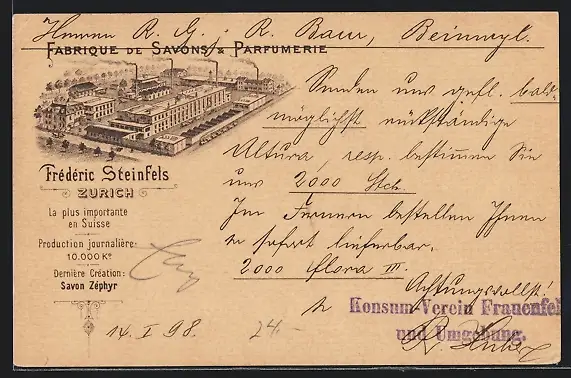 Herren R. G. & R. Baur, Beinwyl.
FABRIQUE DE SAVONS & PARFUMERIE
Frédéric Steinfels
ZURICH
La plus importante
en Suisse
Production journalière:
10.000 Ko
Dernière Création:
Savon Zéphyr
Senden uns gefl. bald-
möglichst rückständige
Altura, resp. bestimmen Sie
uns 2000 Stck.
Im Ferneren bestellen Ihnen
sofort lieferbar.
2000 flora III.
Achtungsvollst!
Konsum-Verein Frauenfel
und Umgebung.
14. I 98.
24.-